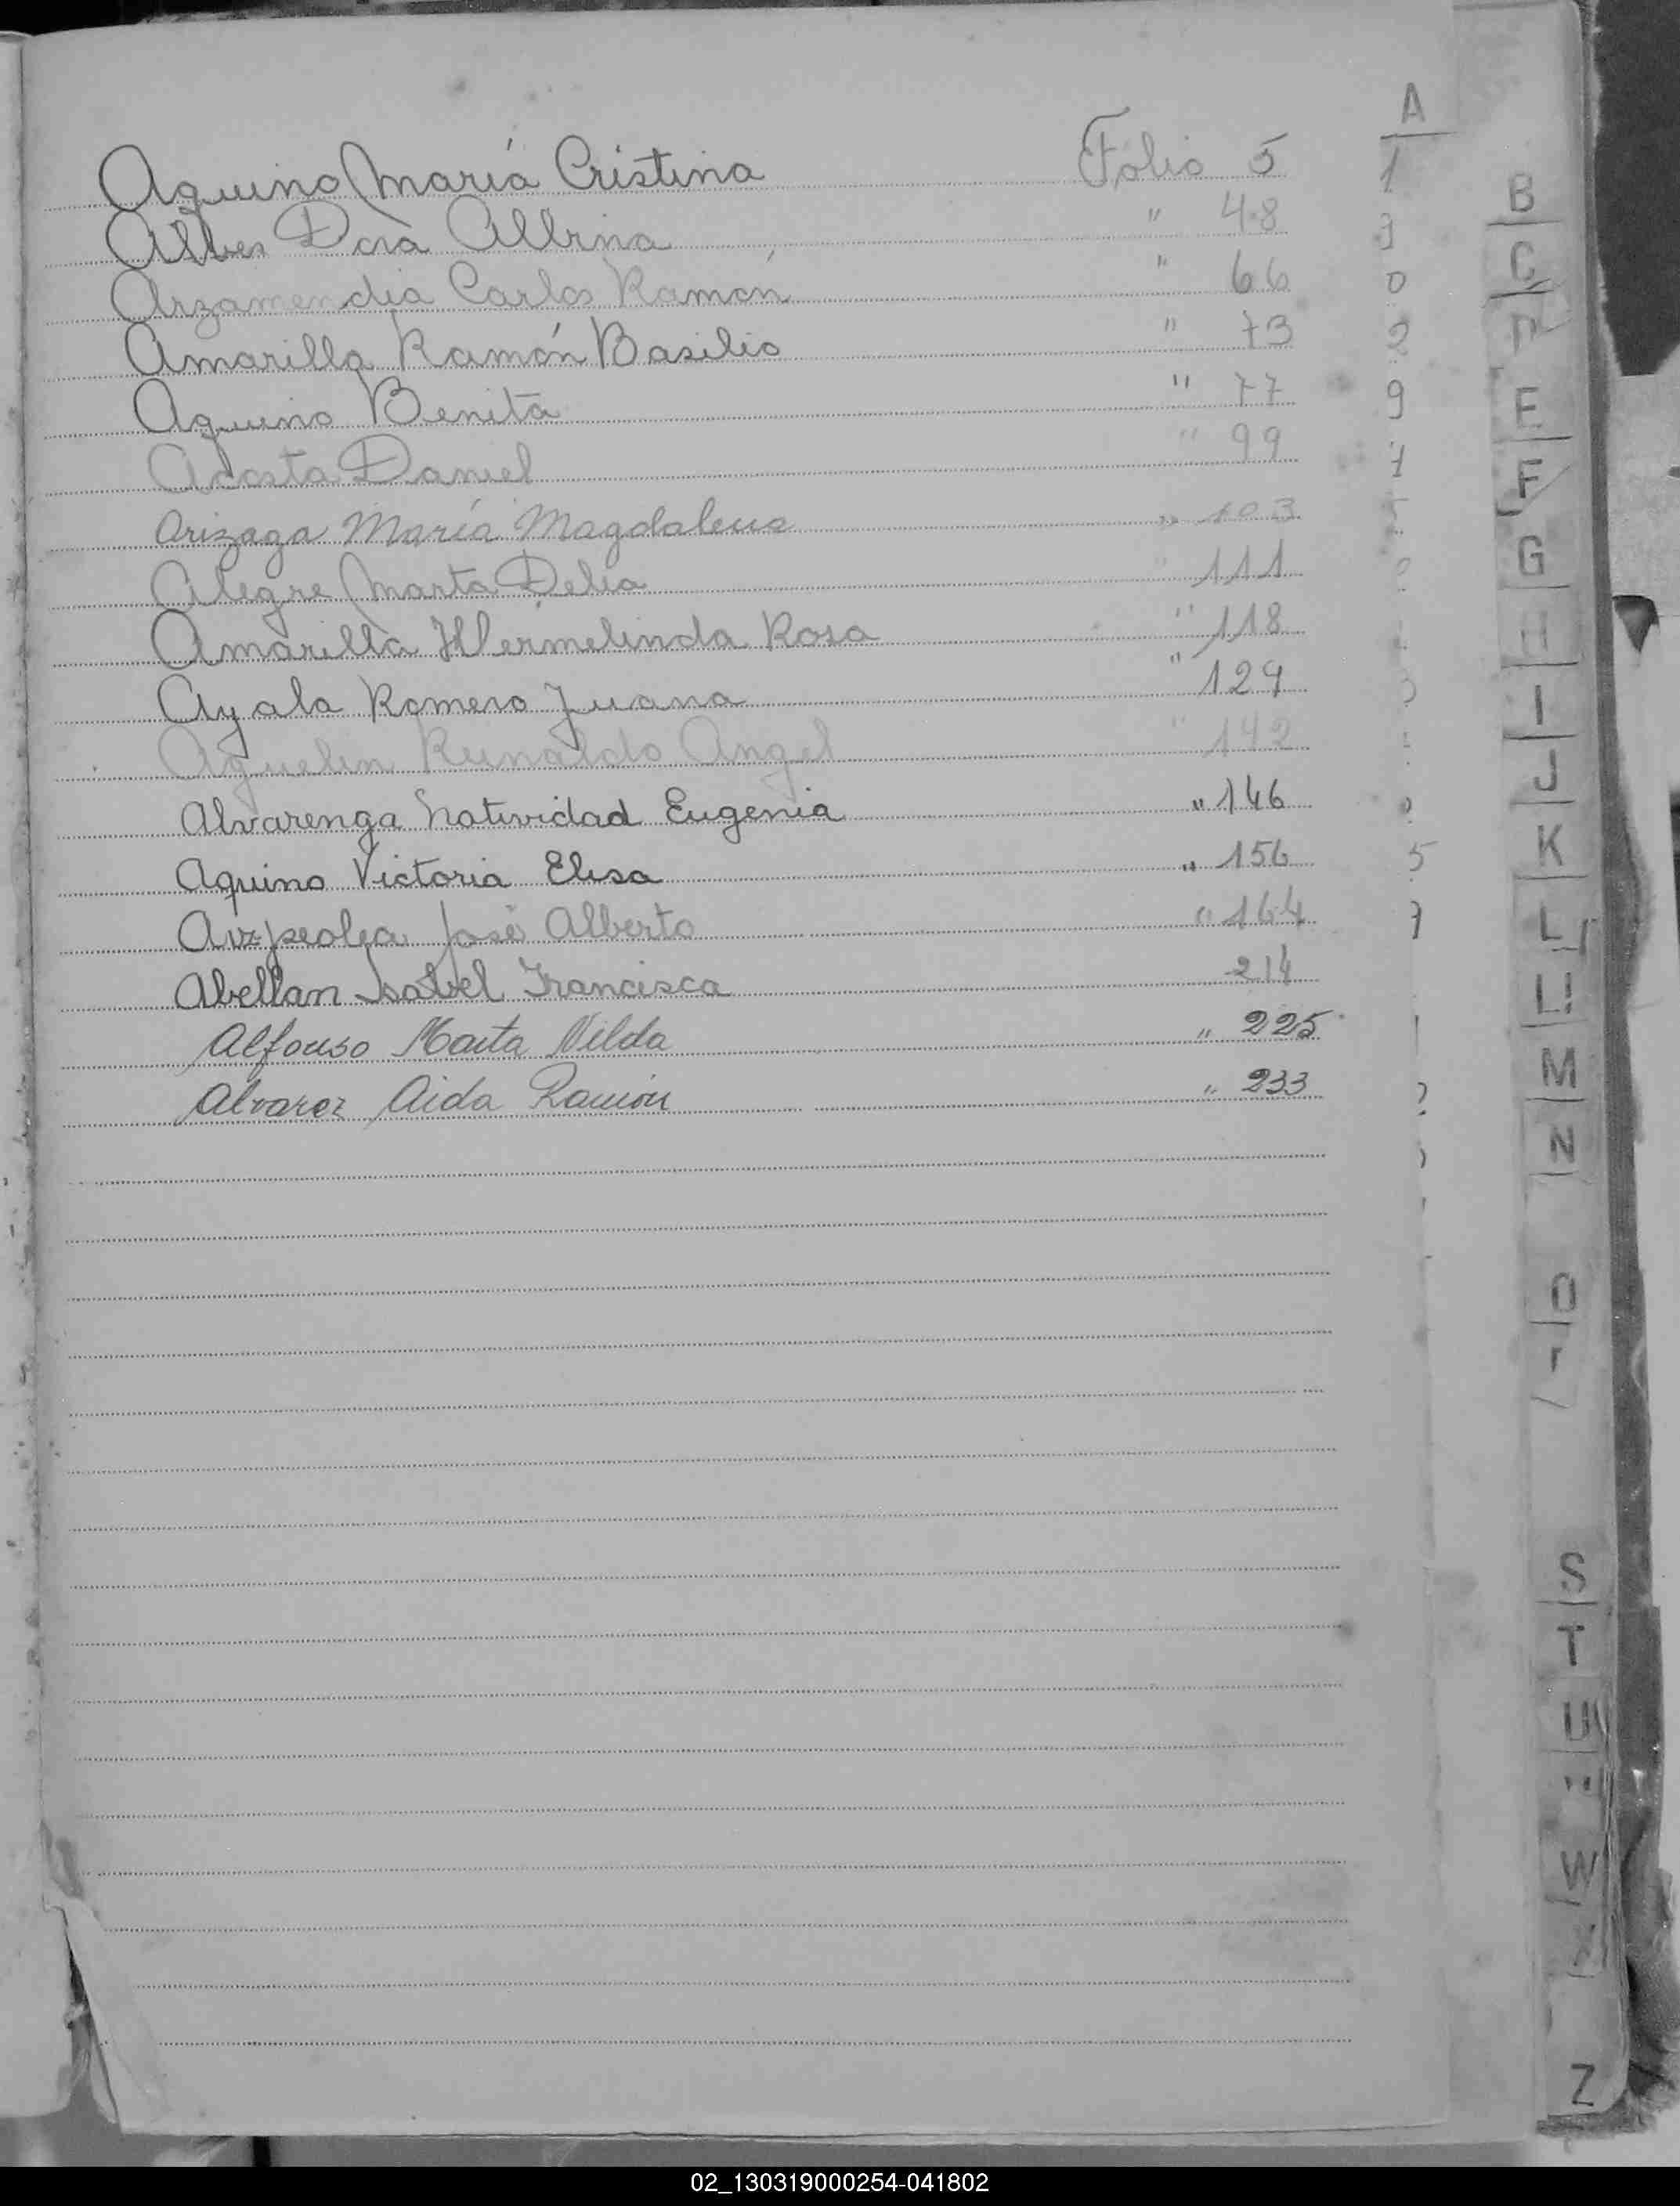 A
Aquino María Cristina Folio 5
Alves Dora Albina " 48
Arzamendia Carlos Ramón " 66
Amarilla Ramón Basilio " 73
Aquino Benita " 77
Acosta Daniel " 99
Arizaga María Magdalena " 103
Alegre Marta Delia " 111
Amarilla Hermelinda Rosa " 118
Ayala Romero Juana " 129
Reinaldo Angel " 142
Alvarenga Natividad Eugenia " 146
Aquino Victoria Elisa " 156
José Alberto " 164
Abellan Isabel Francisca 214
Alfonso Marta Nilda " 225
Alvarez Aida Ramón " 233
B
C
D
E
F
G
H
I
J
K
L
Ll
M
N
O
S
T
U
W
Z
02_130319000254-041802